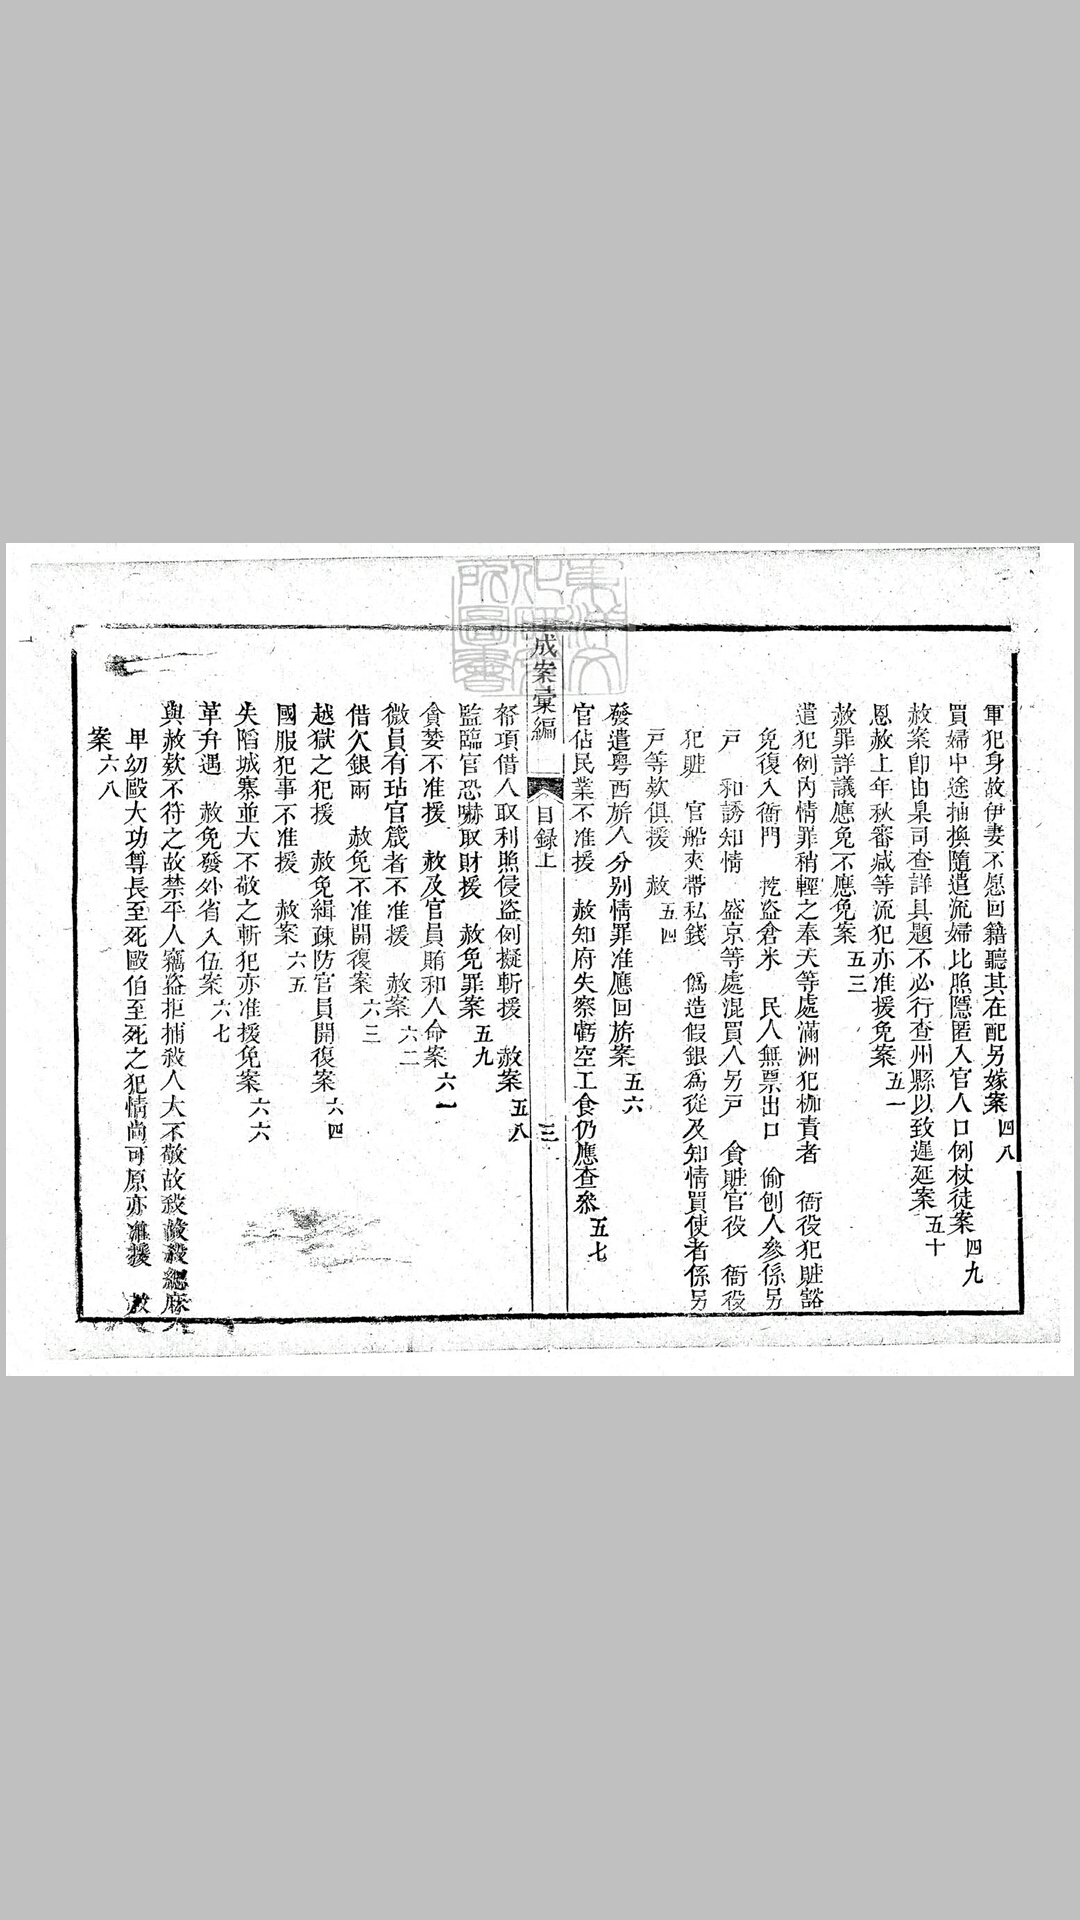 軍犯身故伊妻不愿回籍聽其在配另嫁案四八
買婦中途抽換隨遣流婦比照隱匿入官人口例杖徒案四九
赦案卽由臬司查詳具題不必行查州縣以致遲延案五十
恩赦上年秋審減等流犯亦准援免案五一
赦罪詳議應免不應免案五三
遣犯例內情罪稍輕之奉天等處滿洲犯枷責者　衙役犯賍豁
免復入衙門　挖盜倉米　民人無票出口　偷刨人參係另
戶　和誘知情　盛京等處混買人另戶　貪賍官役　衙役
犯賍　官船夾帶私錢　僞造假銀爲從及知情買使者係另
戶等欵俱援　赦五四
發遣粵西旂人分别情罪准應回旂案五六
官佔民業不准援　赦知府失察虧空工食仍應查參五七
成案彙編　目錄上　三
帑項借人取利照侵盜例擬斬援　赦案五八
監臨官恐嚇取財援　赦免罪案五九
貪婪不准援　赦及官員賄和人命案六一
微員有玷官箴者不准援　赦案六二
借欠銀兩　赦免不准開復案六三
越獄之犯援　赦免緝疎防官員開復案六四
國服犯事不准援　赦案六五
失陷城寨並大不敬之斬犯亦准援免案六六
革弁遇　赦免發外省入伍案六七
與赦欵不符之故禁平人竊盜拒捕殺人大不敬故殺故殺緦麻
卑幼毆大功尊長至死毆伯至死之犯情尚可原亦准援　赦
案六八